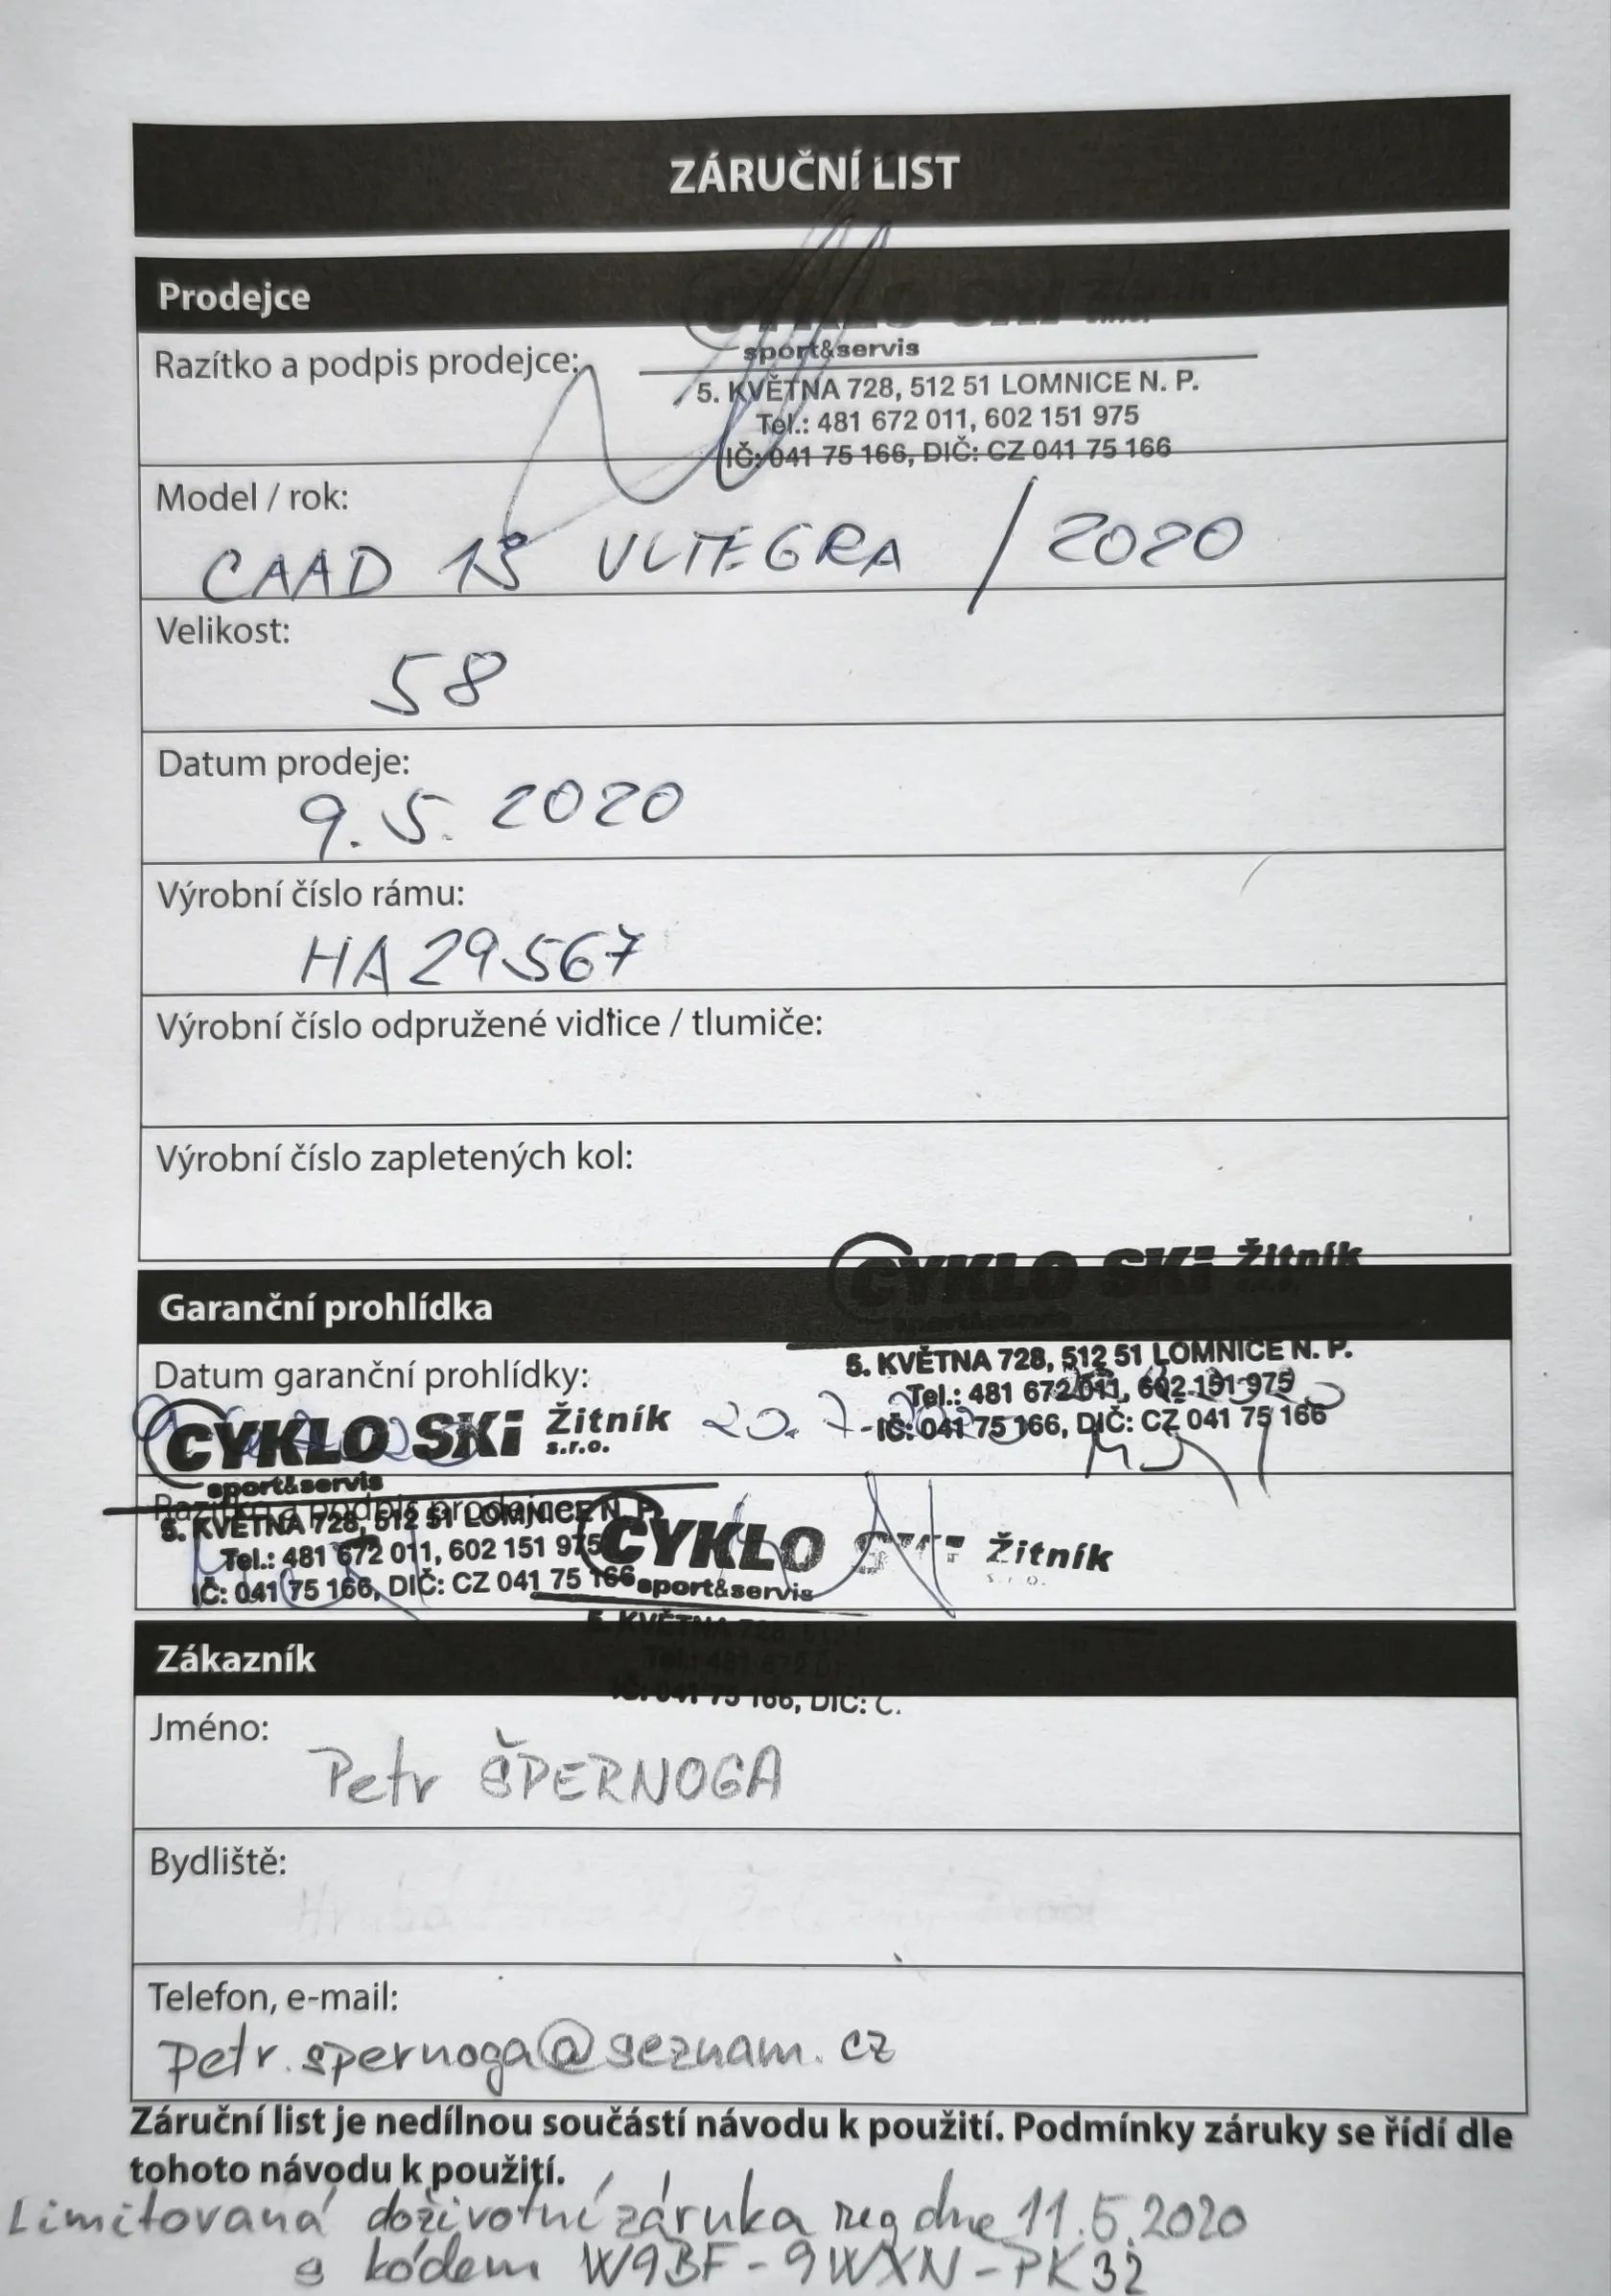 ZÁRUČNÍ LIST
Prodejce
CYKLO SKi
sport&servis
Razítko a podpis prodejce:
5. KVĚTNA 728, 512 51 LOMNICE N. P.
Tel.: 481 672 011, 602 151 975
IČ: 041 75 166, DIČ: CZ 041 75 166
Model / rok:
CAAD 13 ULTEGRA / 2020
Velikost:
58
Datum prodeje:
9. 5. 2020
Výrobní číslo rámu:
HA29567
Výrobní číslo odpružené vidlice / tlumiče:
Výrobní číslo zapletených kol:
CYKLO SKi Žitník
s.r.o.
Garanční prohlídka
sport&servis
5. KVĚTNA 728, 512 51 LOMNICE N. P.
Datum garanční prohlídky:
Tel.: 481 672 011, 602 151 975
IČ: 041 75 166, DIČ: CZ 041 75 166
CYKLO SKi Žitník
s.r.o.
20. 7.
sport&servis
Razítko a podpis prodejce
5. KVĚTNA 728, 512 51 LOMNICE N. P.
Tel.: 481 672 011, 602 151 975
IČ: 041 75 166, DIČ: CZ 041 75 166
CYKLO SKi Žitník
s.r.o.
sport&servis
5. KVĚTNA 728, 51
Tel.: 481 672 0
Zákazník
IČ: 041 75 166, DIČ: C
Jméno:
Petr ŠPERNOGA
Bydliště:
Telefon, e-mail:
petr.spernoga@seznam.cz
Záruční list je nedílnou součástí návodu k použití. Podmínky záruky se řídí dle
tohoto návodu k použití.
Limitovaná doživotní záruka reg dne 11.5.2020
s kódem W9BF-9WXN-PK32